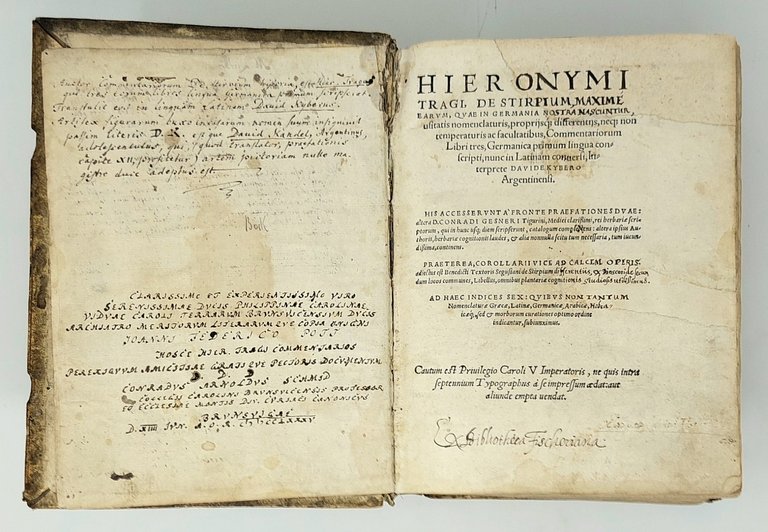 Auctor Commentariorum
qui tres
Transtulit eos in linguam Latinam David Kyberus.
Artifex figurarum nomen suum
passim literis D. K. est que David Kandel, Argentinus,
adolescentulus, qui, translator, praefationis
capite XII, profitetur, artem pictoriam nullo ma
gistro duce adeptus est.
Bock
CLARISSIMO ET EXPERIENTISSIMO VIRO
SERENISSIMAE DUCIS PHILIPPINAE CAROLINAE
VIDUAE CAROLI TERRARUM BRUNSVICENSIUM DUCIS
ARCHIATRO MERITORUM LITERARUMQUE COPIA INSIGNI
IOANNI FEDERICO POTT
HOSCE HIER. TRAGI COMMENTARIOS
PEREXIGUUM AMICITIAE GRATIQUE PECTORIS DOCUMENTUM
D. D.
CONRADUS ARNOLDUS SCHMID
COLLEGII CAROLINI BRUNSVICENSIS PROFESSOR
ET ECCLESIAE DIV. CYRIACI CANONICUS
BRUNSVIGAE
D. XIIII IUN.
HIERONYMI
TRAGI, DE STIRPIUM, MAXIME
EARVM, QVAE IN GERMANIA NOSTRA NASCVNTVR,
usitatis nomenclaturis, proprijsq; differentijs, neq; non
temperaturis ac facultatibus, Commentariorum
Libri tres, Germanica primum lingua con-
scripti, nunc in Latinam conuersi, In-
terprete DAVIDE KYBERO
Argentinensi.
HIS ACCESSERVNT A' FRONTE PRAEFATIONES DVAE:
altera D. CONRADI GESNERI Tigurini, Medici clarissimi, rei herbariæ scri-
ptorum, qui in hunc usq; diem scripserunt, catalogum complectens: altera ipsius Au-
thoris, herbariæ cognitionis laudes, & alia nonnulla scitu tum necessaria, tum iucun-
dissima, continens.
PRAETEREA, COROLLARII VICE AD CALCEM OPERIS,
adiectus est Benedicti Textoris Segusiani de Stirpium differentijs, ex Dioscoride secun
dum locos communes, Libellus, omnibus plantariæ cognitionis studiosis utilissimus.
AD HAEC INDICES SEX: QVIBVS NON TANTVM
Nomenclaturæ Græcæ, Latinæ, Germanicæ, Arabicæ,
sed & morborum curationes optimo ordine
indicantur, subiunximus.
Cautum est Priuilegio Caroli V Imperatoris, ne quis intra
septennium Typographus à se impressum ædat: aut
aliunde empta uendat.
Ex Bibliotheca Fischeriana